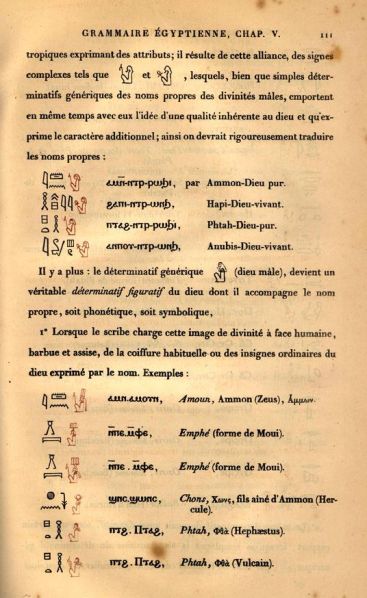 GRAMMAIRE ÉGYPTIENNE, CHAP. V. 111
tropiques exprimant des attributs; il résulte de cette alliance, des signes
complexes tels que et , lesquels, bien que simples déter-
minatifs génériques des noms propres des divinités mâles, emportent
en même temps avec eux l'idée d'une qualité inhérente au dieu et qu'ex-
prime le caractère additionnel; ainsi on devrait rigoureusement traduire
les noms propres :
par Ammon-Dieu pur.
Hapi-Dieu-vivant.
Phtah-Dieu-pur.
Anubis-Dieu-vivant.
Il y a plus : le déterminatif générique (dieu mâle), devient un
véritable déterminatif figuratif du dieu dont il accompagne le nom
propre, soit phonétique, soit symbolique,
1° Lorsque le scribe charge cette image de divinité à face humaine,
barbue et assise, de la coiffure habituelle ou des insignes ordinaires du
dieu exprimé par le nom. Exemples :
ⲁⲙⲛ.ⲁⲙⲟⲩⲛ, Amoun, Ammon (Zeus), Ἀμμων.
Emphé (forme de Moui).
Emphé (forme de Moui).
ϣⲛⲥ.ϣⲱⲛⲥ, Chons, Χωνς, fils aîné d'Ammon (Her-
cule).
ⲡⲧϩ.Ⲡⲧⲁϩ, Phtah, Φθὰ (Hephæstus).
ⲡⲧϩ.Ⲡⲧⲁϩ, Phtah, Φθὰ (Vulcain).